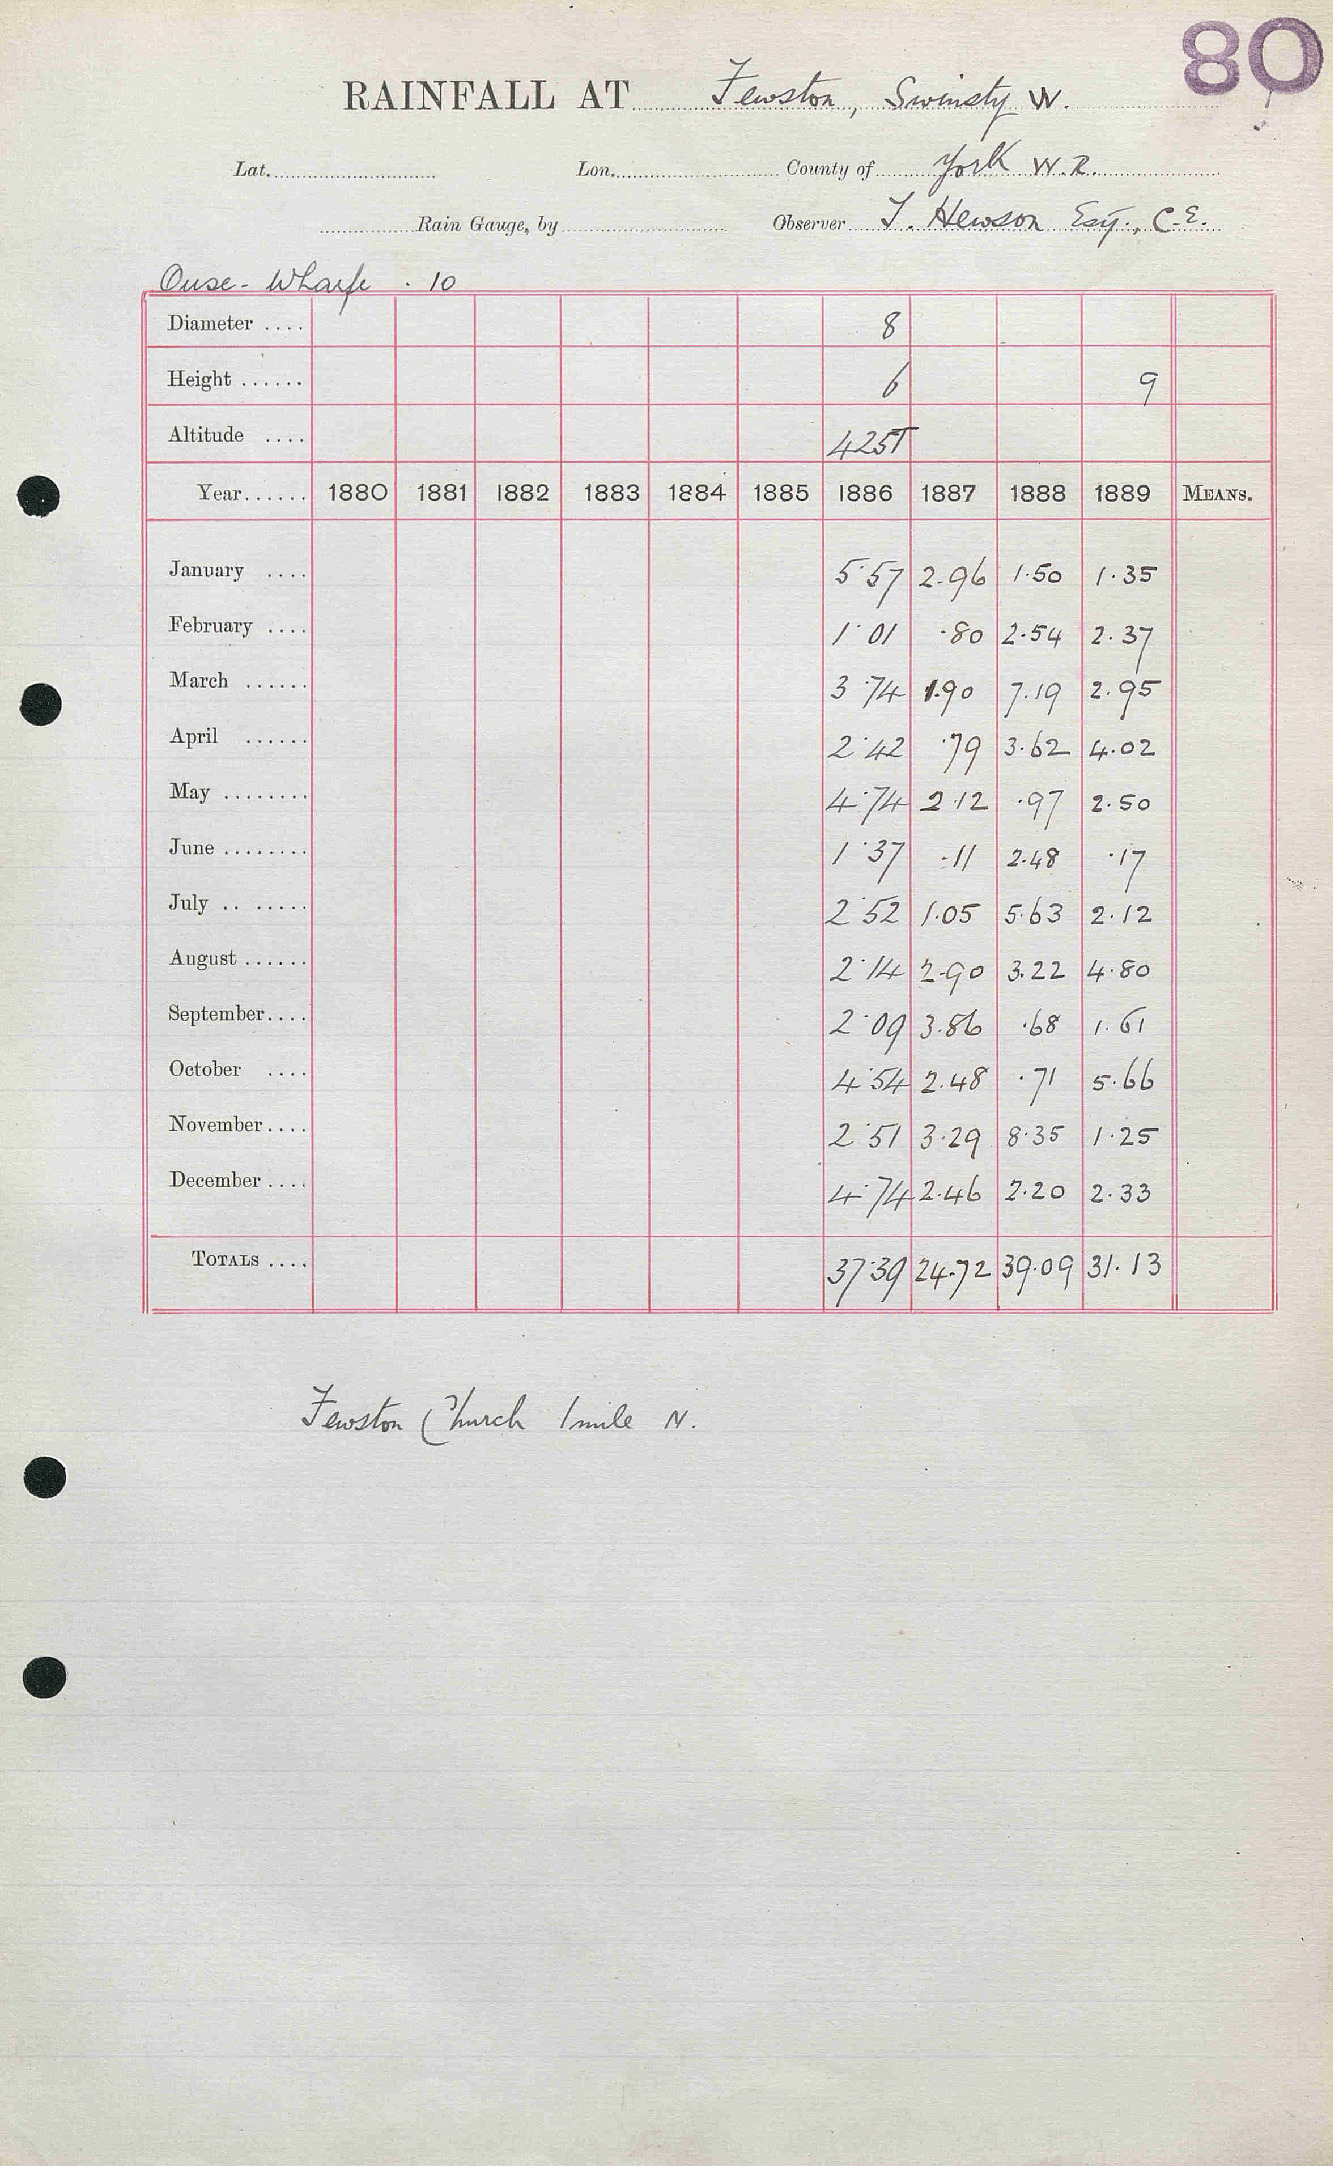 80
RAINFALL AT Fewston, Swinsty W.
Lat. Lon. County of York W.R.
Rain Gauge, by Observer T. Hewson Esq., C.E.
Ouse-Wharfe . 10
Diameter .... 8
Height ...... 6 9
Altitude .... 425T
Year...... 1880 1881 1882 1883 1884 1885 1886 1887 1888 1889 MEANS.
January .... 5.57 2.96 1.50 1.35
February .... 1.01 .80 2.54 2.37
March ...... 3.74 1.90 7.19 2.95
April ...... 2.42 .79 3.62 4.02
May ........ 4.74 2.12 .97 2.50
June ........ 1.37 .11 2.48 .17
July .. ..... 2.52 1.05 5.63 2.12
August ...... 2.14 2.90 3.22 4.80
September.... 2.09 3.86 .68 1.61
October .... 4.54 2.48 .71 5.66
November.... 2.51 3.29 8.35 1.25
December .... 4.74 2.46 2.20 2.33
TOTALS .... 37.39 24.72 39.09 31.13
Fewston Church 1 mile N.